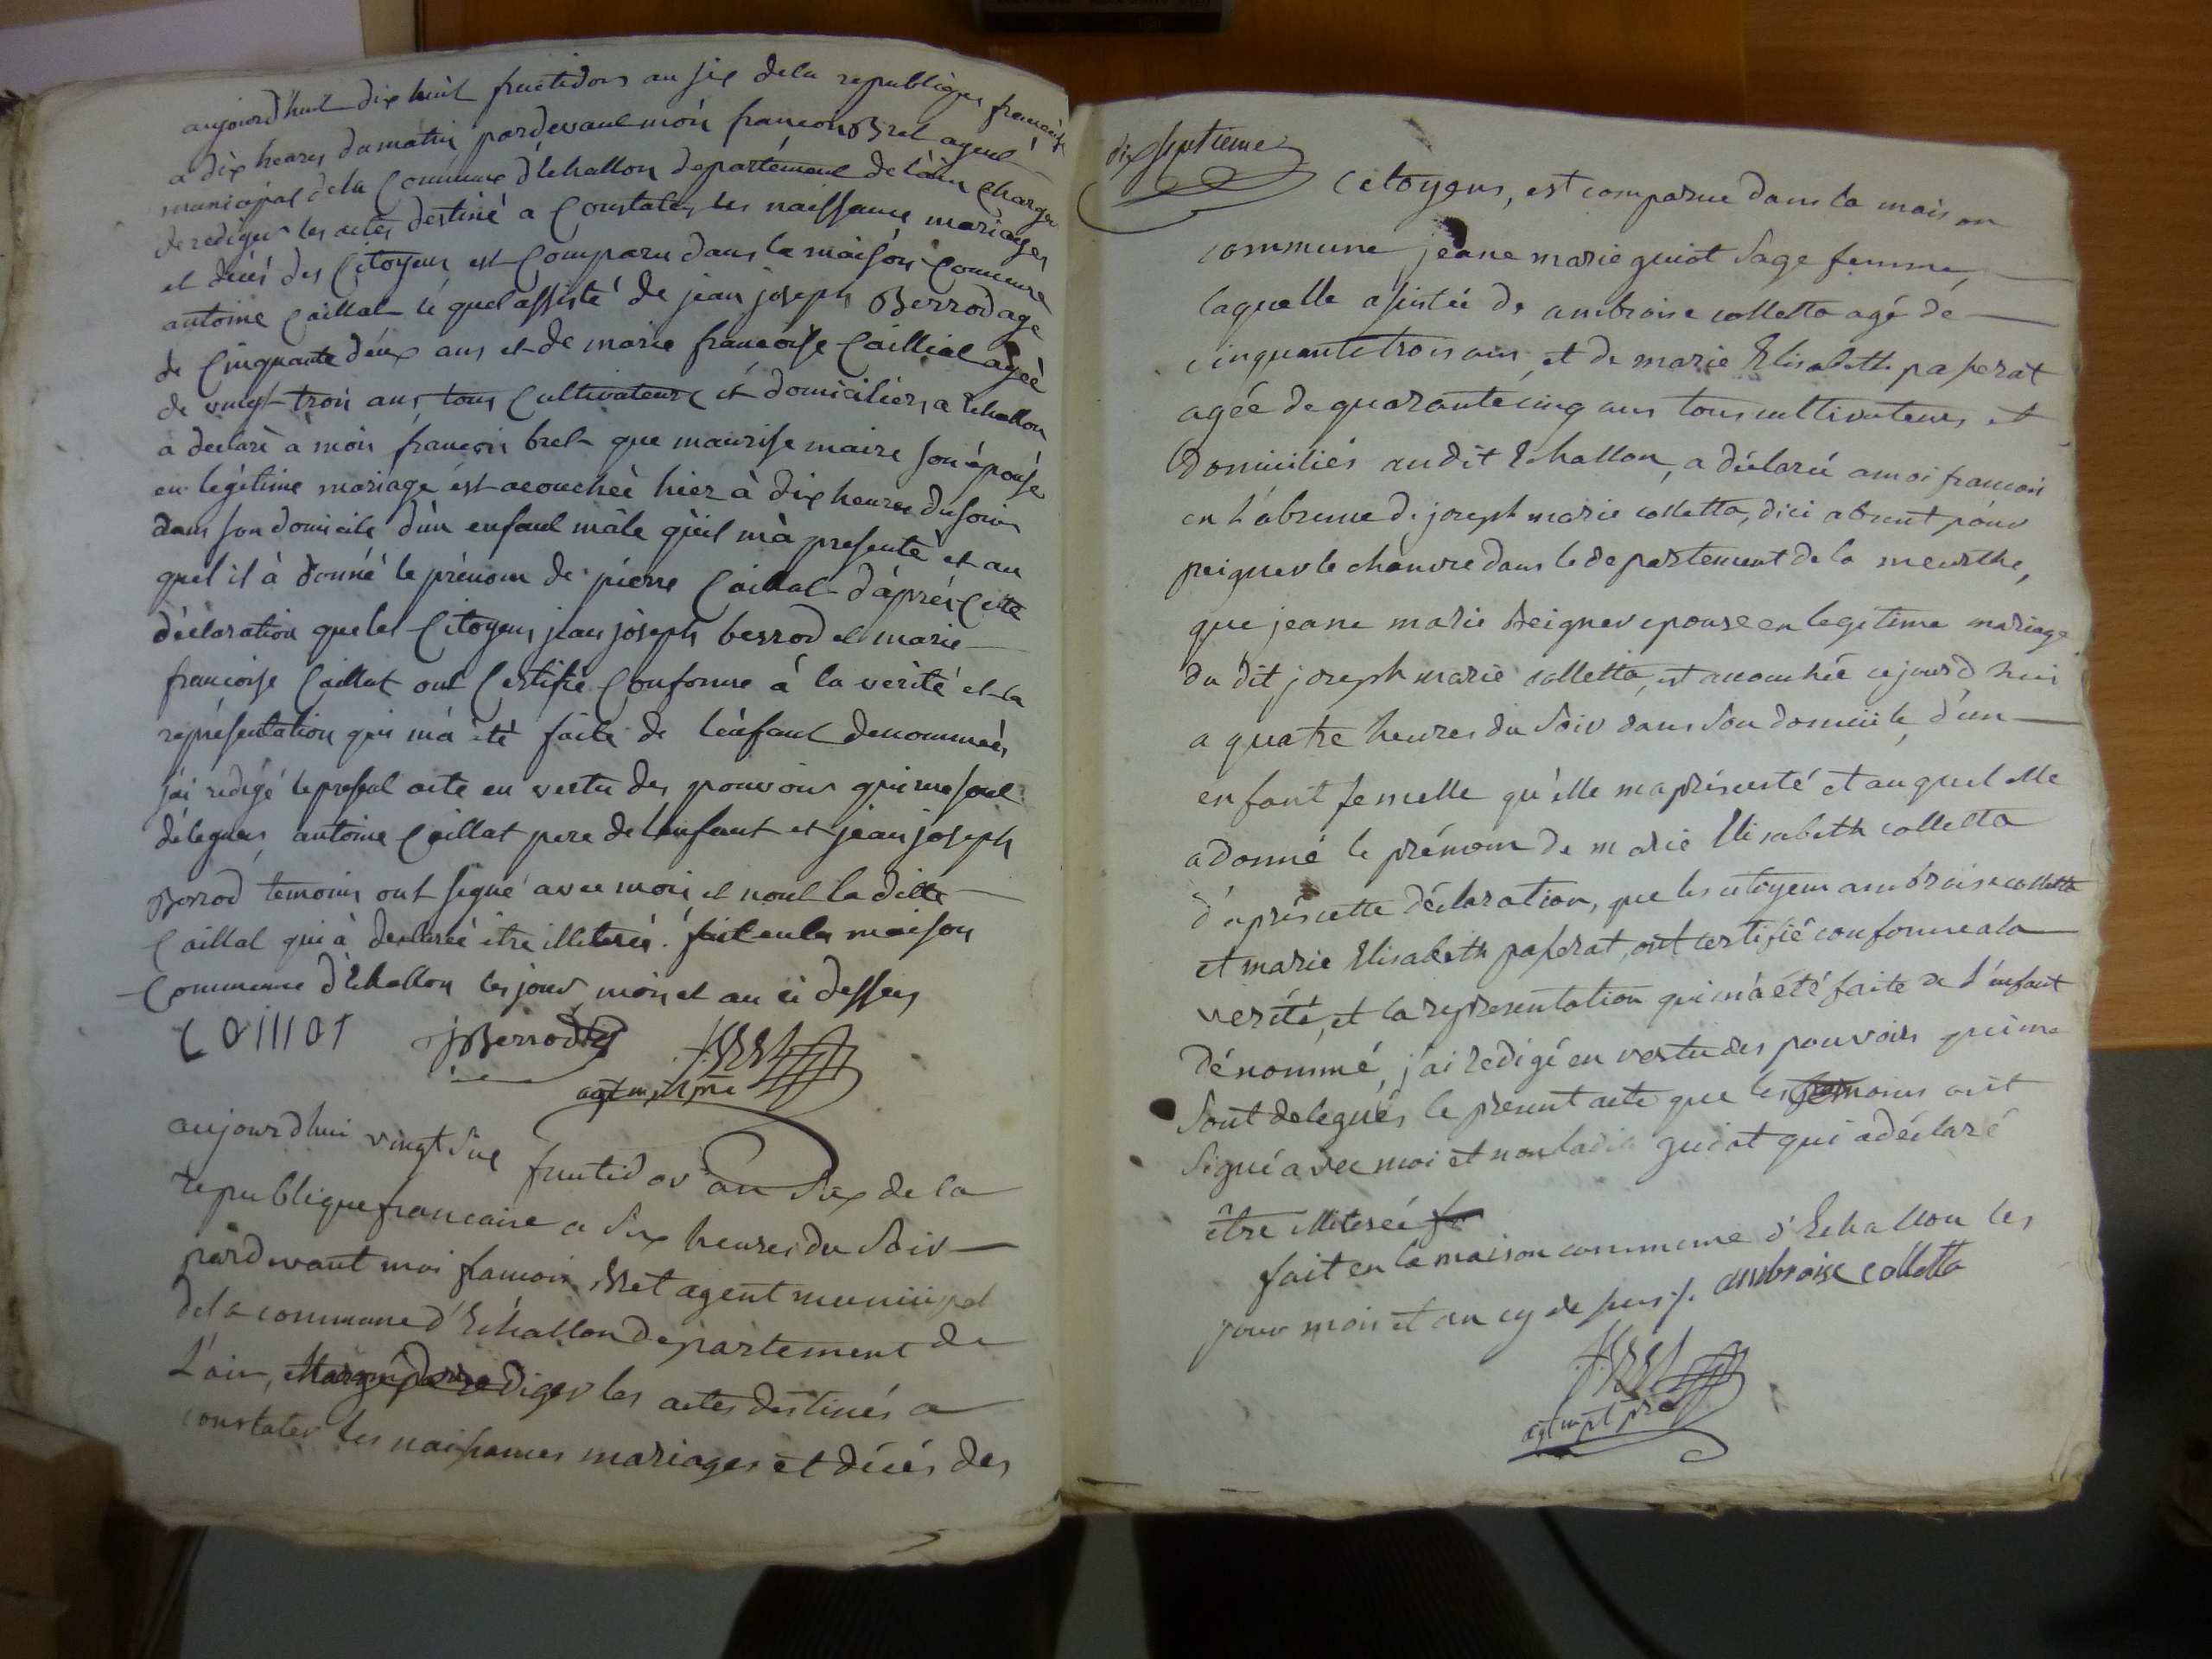 aujourd'huit dix huit fructidors an six dela republiques francaise
a dix heures du matin pardevant moi francois Bret agent
municipal dela Commune d'Echallon departement de l'ain charger
de rediger les actes destiné a Constater les naissance mariages
et décés des Citoyens est Comparu dans la maison Commune
antoine Caillat le quel assisté de jean joseph Berrod agé
de Cinquante déux ans et de marie francoise Cailliat agéé
de vingt-trois ans tous Cultivateurs et domiciliers a Echallon
a declaré a moi francois bret que maurise maire son épouse
en légitime mariage est acouchéé hier à dix heures du soir
dans son domicile d'un enfant mâle qu'il m'à presenté et au
quel il à donné le prénom de pierre Caillat d'áprés Cette
déclaration que les Citoyens jean joseph berrod et marie
francoise Caillat ont Certifie Conforme á la verité et la
représentation qui m'a été faite de l'enfant denommée
j'ai redigé le present acte en vertu des pouvoirs qui me sont
délegués antoine Caillat pere de l'enfant et jean joseph
Berrod temoins ont signé avec moi et nont la ditte
Caillat qui à declaréé être illiterée. fait en la maison
Commune d'Echallon les jour mois et an ci dessus
Caillat jj Berrod f. Bret
agt mpl pre
aujourdhui vingt six fructidor an six de la
republique francaise a six heures du soir
pardevant moi francois Bret agent municipal
dela commune d'Echallon departement de
L'ain, chargé de rediger les actes destinés a
constater les naissances mariages et décés des
dix septieme
citoyens, est comparue dans la maison
commune jeane marie guiot sage femme,
laquelle assistée de ambroise colletta agé de
cinquante trois ans, et de marie Elisabeth passerat
agée de quarante cinq ans tous cultivateurs et
Domiciliés audit Echallon, a déclaré a moi francois
en l'absence de joseph marie colletta, d'ici absent pour
peigner le chanvre dans le departement de la meurthe,
que jeane marie Beigner epouse en legitime mariage
du dit joseph marie colletta, est accouchée ce jourd'hui
a quatre heures du soir dans son domicile, d'un
enfant femelle qu'elle ma présenté et auquel elle
a donné le prénom de marie Elisabeth colletta
d'après cette déclaration, que les citoyens ambroise colletta
et marie Elisabeth passerat, ont certifié conforme a la
verité, et la representation qui m'a été faite de l'enfant
dénommé, j'ai redigé en vertu des pouvoirs qui me
sont delegués, le present acte que les temoins ont
signé avec moi et non ladite guiot qui a déclaré
être illiterée
fait en la maison commune d'Echallon les
jour mois et an cy dessus ambroise colletta
f. Bret
agt mpl pre